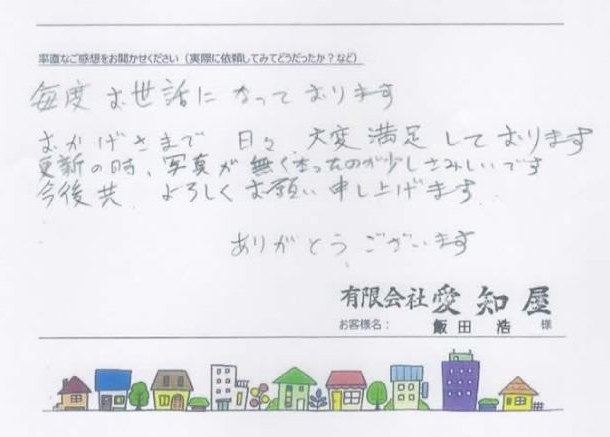 率直なご感想をお聞かせください（実際に依頼してみてどうだったか？など）
毎度お世話になっております
おかげさまで 日々、大変満足しております
更新の時、写真が無くなったのが少しさみしいです
今後共 よろしくお願い申し上げます
ありがとうございます
有限会社愛知屋
お客様名： 飯田 浩 様